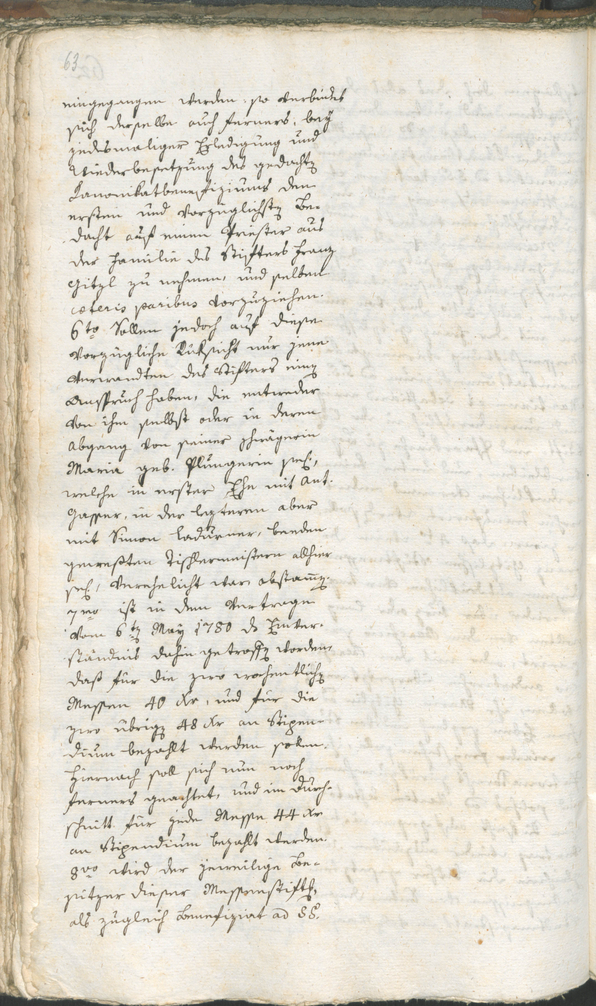 63
eingegangen werden, so verbindet
sich derselbe auch ferners, bey
jedesmaliger Erledigung und
Wiederbesetzung des gedachtn
Canonikatbenefiziums den
ersten und vorzüglichstn Be-
dacht auf einen Priester aus
der Familie des Stifters Franz
Gitzl zu nehmen, und selben
ceteris paribus vorzuziehen.
6to Sollen jedoch auf diese
vorzügliche Rüksicht nur jene
Verwandten des Stifters einn
Anspruch haben, die entweder
von ihm selbst oder in deren
Abgang von seiner
Maria geb. Plungerin sel.,
welche in erster Ehe mit Ant.
Gasser, in der lezteren aber
mit Simon Ladurner, beeden
gewesten Tischlermeistern allhier
sel., verehelicht war, abstamn.
7mo ist in dem Vertrage
vom 6tn May 1780 die Einver-
ständnis dahin getroffn worden,
daß für die zwo wochentlichn
Messen 40 Xr, und für die
zwo übrign 48 Xr an Stipen-
dium bezahlt werden sollen.
Hiernach soll sich nun noch
ferners geachtet, und im Durch-
schnitt für jede Messe 44 Xr
an Stipendium bezahlt werden.
8vo wird der jeweilige Be-
sitzer dieser Messenstiftn
als zugleich Benefiziat ad SS.